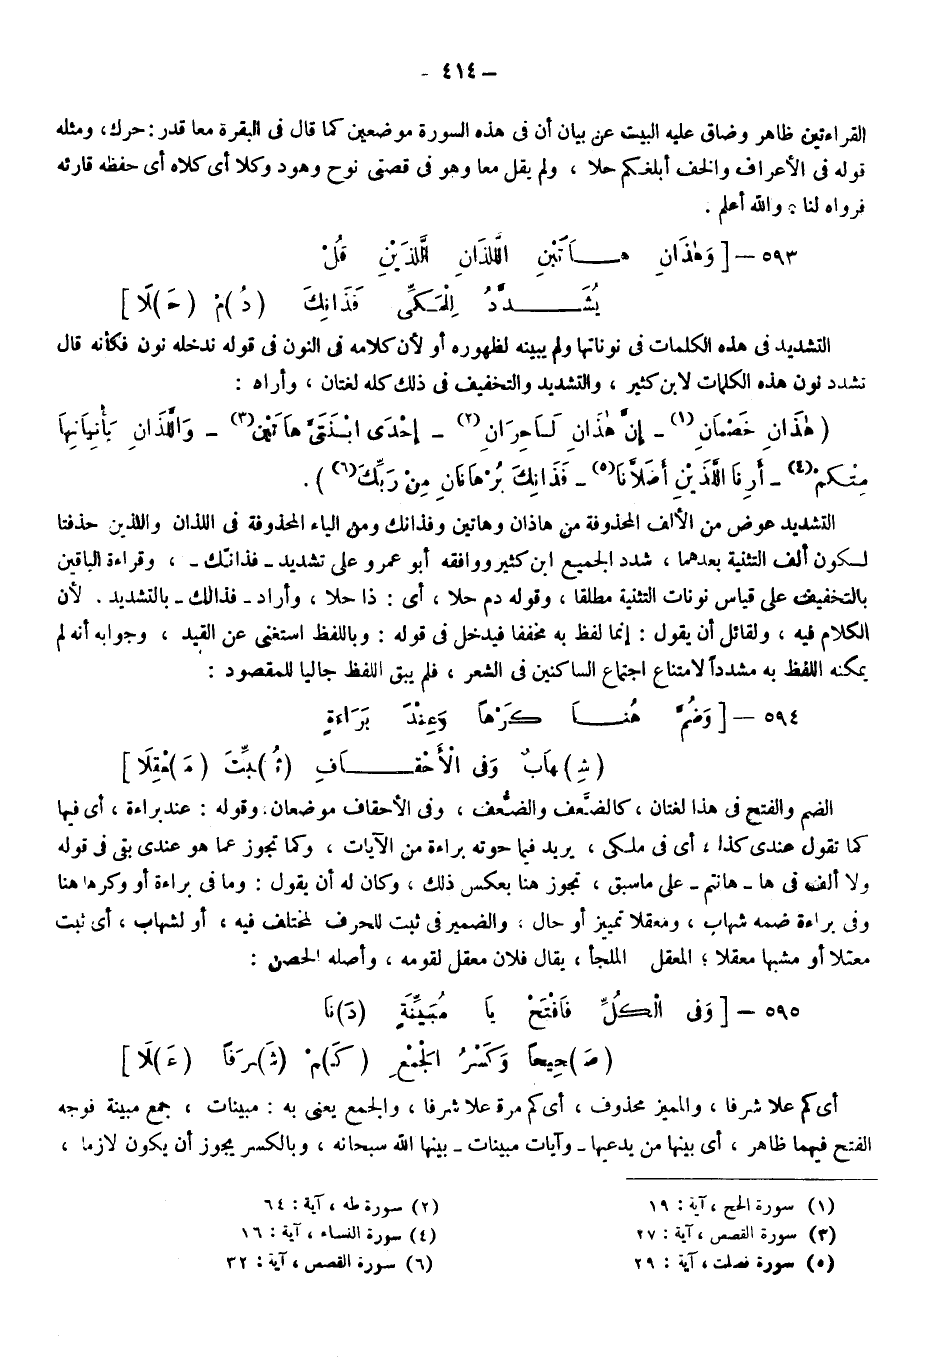 – ٤١٤ –
القراءتين ظاهر وضاق عليه البيت عن بيان أن فى هذه السورة موضعين كما قال فى البقرة معا قدر : حرك، ومثله
قوله فى الأعراف والخف أبلغكم حلا ، ولم يقل معا وهو فى قصتى نوح وهود وكلا أى كلاه أى حفظه قارئه
فرواه لنا ؛ والله أعلم .
٥٩٣ – [ وَهٰذَانِ هَــاتَيْنِ اللَّذَانِ اللَّذَيْنِ قُلْ
يُشَــدَّدُ لِلْمَكِّى فَذَانِكَ (دُ)مْ (حَ)لَا ]
التشديد فى هذه الكلمات فى نوناتها ولم يبينه لظهوره أو لأن كلامه فى النون فى قوله ندخله نون فكأنه قال
نشدد نون هذه الكلمات لابن كثير ، والتشديد والتخفيف فى ذلك كله لغتان ، وأراه :
( هٰذَانِ خَصْمَانِ(١) ــ إِنَّ هٰذَانِ لَسَاحِرَانِ (٢) ــ إِحْدَى ابْنَتَىَّ هَاتَيْنِ(٣) ــ وَاللَّذَانِ يَأْتِيَانِهَا
مِنْكُمْ(٤) ــ أَرِنَا اللَّذَيْنِ أَضَلَّانَا(٥) ــ فَذَانِكَ بُرْهَانَانِ مِنْ رَبِّكَ(٦) ) .
التشديد عوض من الألف المحذوفة من هاذان وهاتين وفذانك ومن الياء المحذوفة فى اللذان واللذين حذفتا
لسكون ألف التثنية بعدهما ، شدد الجميع ابن كثير ووافقه أبو عمرو على تشديد ــ فذانّك ــ ، وقراءة الباقين
بالتخفيف على قياس نونات التثنية مطلقا ، وقوله دم حلا ، أى : ذا حلا ، وأراد ــ فذالك ــ بالتشديد . لأن
الكلام فيه ، ولقائل أن يقول : إنما لفظ به مخففا فيدخل فى قوله : وباللفظ استغنى عن القيد ، وجوابه أنه لم
يمكنه اللفظ به مشدداً لامتناع اجتماع الساكنين فى الشعر ، فلم يبق اللفظ جاليا للمقصود :
٥٩٤ – [ وَضُمَّ هُنَــا كَرْهاً وَعِنْدَ بَرَاءَةٍ
(شِ)هَابٌ وَفِى الْأَحْقَــافِ (ثُ)بِّتَ (مَ)عْقِلَا ]
الضم والفتح فى هذا لغتان ، كالضَّعف والضُّعف ، وفى الأحقاف موضعان. وقوله : عند براءة ، أى فيها
كما تقول عندى كذا ، أى فى ملكى ، يريد فيما حوته براءة من الآيات ، وكما تجوز عما هو عندى بقى فى قوله
ولا ألف فى ها ــ هانتم ــ على ماسبق ، تجوز هنا بعكس ذلك ، وكان له أن يقول : وما فى براءة أو وكرها هنا
وفى براءة ضمه شهاب ، ومعقلا تمييز أو حال ، والضمير فى ثبت للحرف المختلف فيه ، أو لشهاب ، أى ثبت
معتلا أو مشبها معقلا ؛ المعقل الملجأ ، يقال فلان معقل لقومه ، وأصله الحصن :
٥٩٥ – [ وَفِى الْكُلِّ فَافْتَحْ يَا مُبَيِّنَةٍ (دَ)نَا
(صَ)حِيحاً وَكَسْرُ الْجَمْعِ (كَ)مْ (شَ)رَفاً (عَ)لَا ]
أى كم علا شرفا ، والمميز محذوف ، أى كم مرة علا شرفا ، والجمع يعنى به : مبينات ، جمع مبينة فوجه
الفتح فيهما ظاهر ، أى بينها من يدعيها ــ وآيات مبينات ــ بينها الله سبحانه ، وبالكسر يجوز أن يكون لازما ،
(١) سورة الحج ، آية : ١٩
(٢) سورة طه ، آية : ٦٤
(٣) سورة القصص ، آية : ٢٧
(٤) سورة النساء ، آية : ١٦
(٥) سورة فصلت ، آية : ٢٩
(٦) سورة القصص ، آية : ٣٢